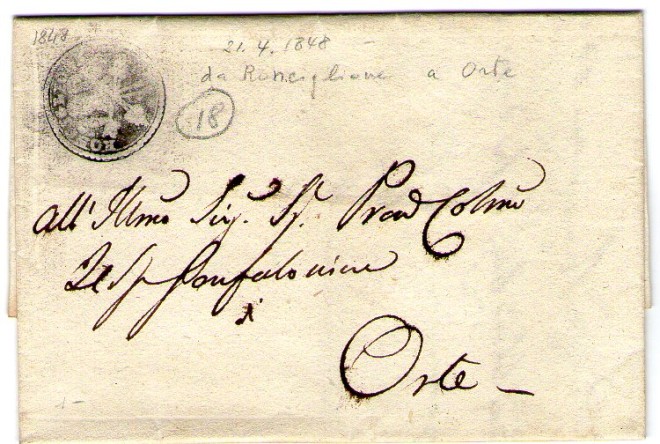 1848
21. 4. 1848 —
da Ronciglione a Orte
18
All' Illmo Sig. Sig. Pron Colmo
Gonfaloniere
Orte —